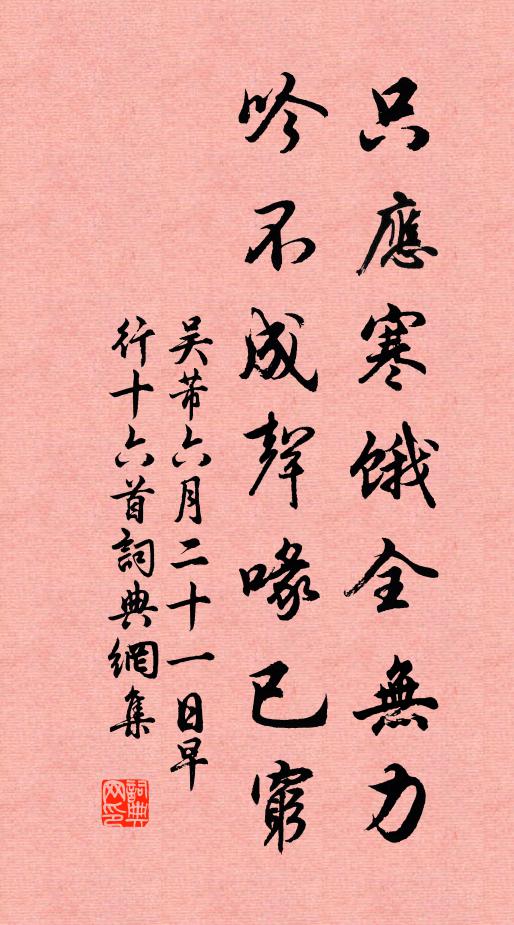 只應寒餓全無力
吟不成聲喙已窮
吴芾六月二十一日早
行十六首詞典網集
詞典
网印